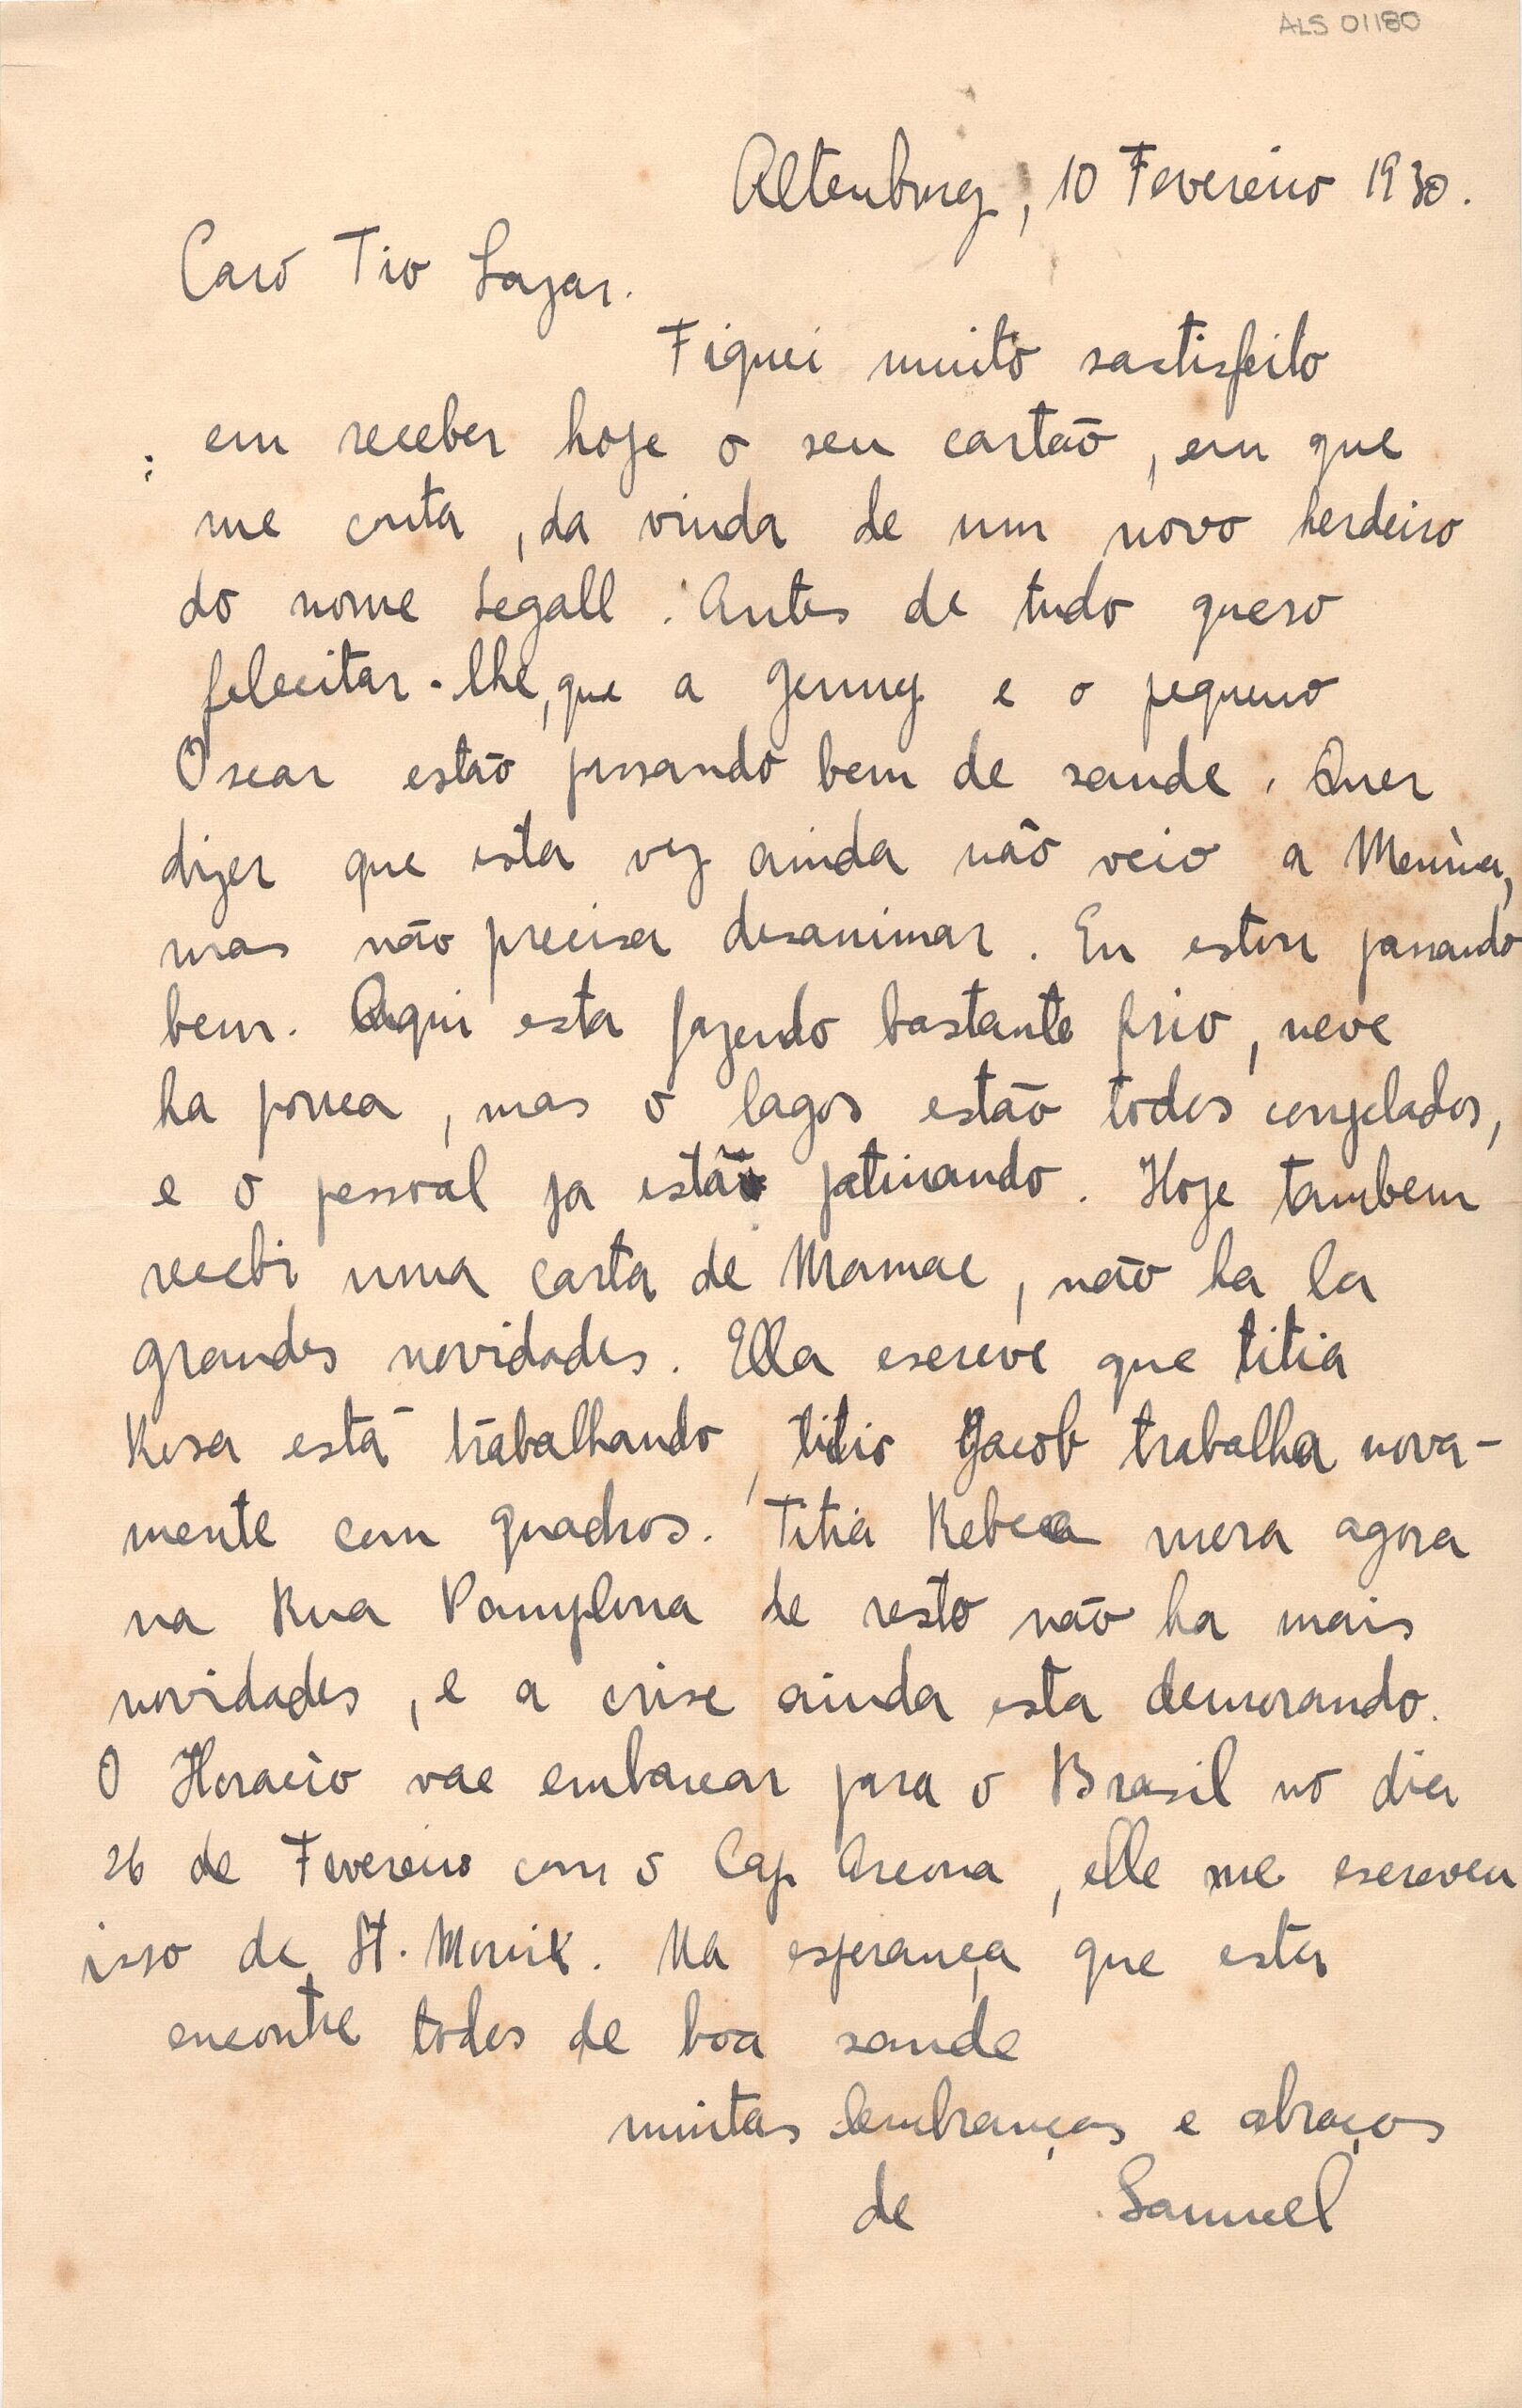 ALS 01180
Altenburg, 10 Fevereiro 1930.
Caro Tio Lazar.
Fiquei muito sastisfeito
em receber hoje o seu cartão, em que
me conta, da vinda de um novo herdeiro
do nome Segall. Antes de tudo quero
felecitar-lhe, que a Jenny e o pequeno
Oscar estão passando bem de saude. Quer
dizer que esta vez ainda não veio a Menina,
mas não precisa desanimar. Eu estou passando
bem. Aqui esta fazendo bastante frio, neve
ha pouca, mas o lagos estão todos congelados,
e o pessoal ja estão patinando. Hoje tambem
recebi uma carta de Mamae, não ha la
grandes novidades. Ella escreve que titia
Rosa está trabalhando, titio Jacob trabalha nova-
mente com quadros. Titia Rebeca mora agora
na Rua Pamplona de resto não ha mais
novidades, e a crise ainda esta demorando.
O Horacio vae embarcar para o Brasil no dia
26 de Fevereiro com o Cap Arcona, elle me escreveu
isso de St. Moritz. Na esperança que esta
encontre todos de boa saude
muitas lembranças e abraços
de Samuel